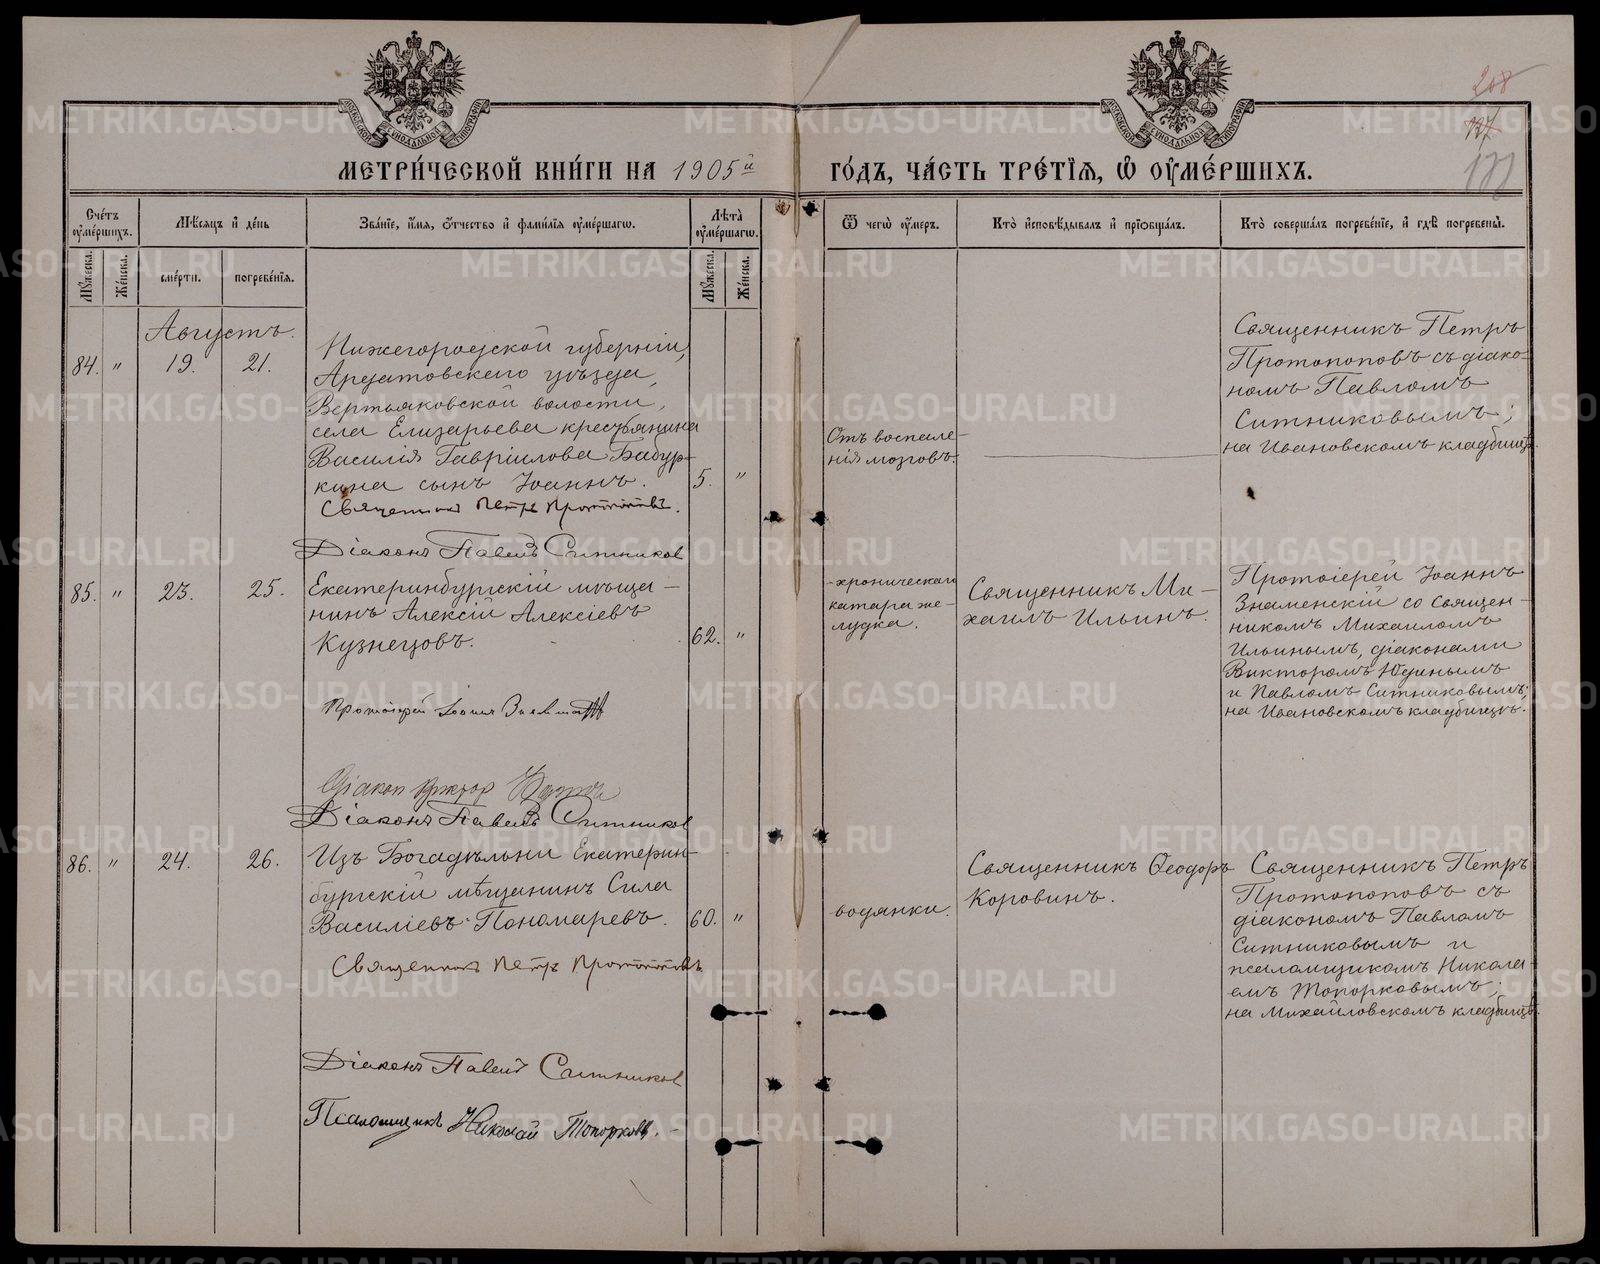 208
МЕТРИ́ЧЕСКОЙ КНИ́ГИ НА 1905й ГО́ДЪ, ЧА́СТЬ ТРЕ́ТІѦ, Ѽ ОУМЕ́РШИХЪ.
Сче́тъ оуме́ршихъ.
Мѣ́сяцъ и де́нь
Зва́ніе, и́мя, о́тчество и фами́лія оуме́ршагѡ.
Лѣта̀ оуме́ршагѡ.
Ѿ чегѡ̀ оу́меръ.
Кто̀ исповѣ́дывалъ и пріѡбща́лъ.
Кто̀ соверша́лъ погребе́ніе, и гдѣ̀ погребены̀.
Му́жеска.
Же́нска.
сме́рти.
погребе́нія.
Му́жеска.
Же́нска.
Августъ.
84. " 19. 21.
Нижегородской губерніи,
Ардатовскаго уѣзда,
Вертьяковской волости,
села Елизарьева крестьянина
Василія Гавріилова Бабур-
кина сынъ Іоаннъ. 5. "
Священникъ Петръ Протопоповъ.
Діаконъ Павелъ Ситников
Отъ воспале-
нія мозговъ.
Священникъ Петръ
Протопоповъ съ діако-
номъ Павломъ
Ситниковымъ;
на Ивановскомъ кладбищѣ.
85. " 23. 25.
Екатеринбургскій мѣща-
нинъ Алексій Алексіевъ
Кузнецовъ. 62. "
Протоіерей Іоаннъ
Діакон Виктор
Діаконъ Павелъ Ситников
хроническаго
катара же-
лудка.
Священникъ Ми-
хаилъ Ильинъ.
Протоіерей Іоаннъ
Знаменскій со священ-
никомъ Михаиломъ
Ильинымъ, діаконами
Викторомъ Юдинымъ
и Павломъ Ситниковымъ;
на Ивановскомъ кладбищѣ.
86. " 24. 26.
Изъ Богадѣльни Екатерин-
бургскій мѣщанинъ Сила
Василіевъ Пономаревъ. 60. "
Священникъ Петръ Протопоповъ
Діаконъ Павелъ Ситников
Псаломщикъ Николай Топорковъ.
водянки.
Священникъ Ѳеодоръ
Коровинъ.
Священникъ Петръ
Протопоповъ съ
діакономъ Павломъ
Ситниковымъ и
псаломщикомъ Никола-
емъ Топорковымъ;
на Михайловскомъ кладбищѣ.
METRIKI.GASO-URAL.RU